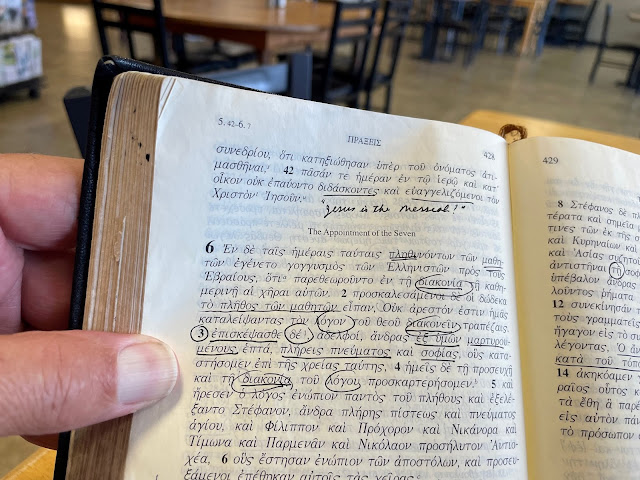 5. 42-6. 7
ΠΡΑΞΕΙΣ
428
συνεδρίου, ὅτι κατηξιώθησαν ὑπὲρ τοῦ ὀνόματος ἀτι-
μασθῆναι, 42 πᾶσάν τε ἡμέραν ἐν τῷ ἱερῷ καὶ κατ'
οἶκον οὐκ ἐπαύοντο διδάσκοντες καὶ εὐαγγελιζόμενοι τὸν
Χριστὸν Ἰησοῦν.
"Jesus is the Messiah!"
The Appointment of the Seven
6 Ἐν δὲ ταῖς ἡμέραις ταύταις πληθυνόντων τῶν μαθη-
τῶν ἐγένετο γογγυσμὸς τῶν Ἑλληνιστῶν πρὸς τοὺς
Ἑβραίους, ὅτι παρεθεωροῦντο ἐν τῇ διακονίᾳ τῇ καθη-
μερινῇ αἱ χῆραι αὐτῶν. 2 προσκαλεσάμενοι δὲ οἱ δώδεκα
τὸ πλῆθος τῶν μαθητῶν εἶπαν, Οὐκ ἀρεστόν ἐστιν ἡμᾶς
καταλείψαντας τὸν λόγον τοῦ θεοῦ διακονεῖν τραπέζαις.
3 ἐπισκέψασθε δέ, ἀδελφοί, ἄνδρας ἐξ ὑμῶν μαρτυρου-
μένους ἑπτά, πλήρεις πνεύματος καὶ σοφίας, οὓς κατα-
στήσομεν ἐπὶ τῆς χρείας ταύτης, 4 ἡμεῖς δὲ τῇ προσευχῇ
καὶ τῇ διακονίᾳ τοῦ λόγου προσκαρτερήσομεν. 5 καὶ
ἤρεσεν ὁ λόγος ἐνώπιον παντὸς τοῦ πλήθους καὶ ἐξελέ-
ξαντο Στέφανον, ἄνδρα πλήρης πίστεως καὶ πνεύματος
ἁγίου, καὶ Φίλιππον καὶ Πρόχορον καὶ Νικάνορα καὶ
Τίμωνα καὶ Παρμενᾶν καὶ Νικόλαον προσήλυτον Ἀντιο-
χέα, 6 οὓς ἔστησαν ἐνώπιον τῶν ἀποστόλων, καὶ προσευ-
ξάμενοι ἐπέθηκαν αὐτοῖς τὰς χεῖρας.
429
8 Στέφανος δὲ
τέρατα καὶ σημεῖα
τινες τῶν ἐκ τῆς
καὶ Κυρηναίων καὶ
καὶ Ἀσίας συζητοῦ
ἀντιστῆναι τῇ σοφί
ὑπέβαλον ἄνδρας
λοῦντος ῥήματα
12 συνεκίνησάν
τοὺς γραμματεῖς
ἤγαγον εἰς τὸ συ
λέγοντας, Ὁ ἄν
κατὰ τοῦ τόπο
14 ἀκηκόαμεν
ραῖος οὗτος κ
τὰ ἔθη ἃ παρέ
εἰς αὐτὸν πάν
τὸ πρόσωπον